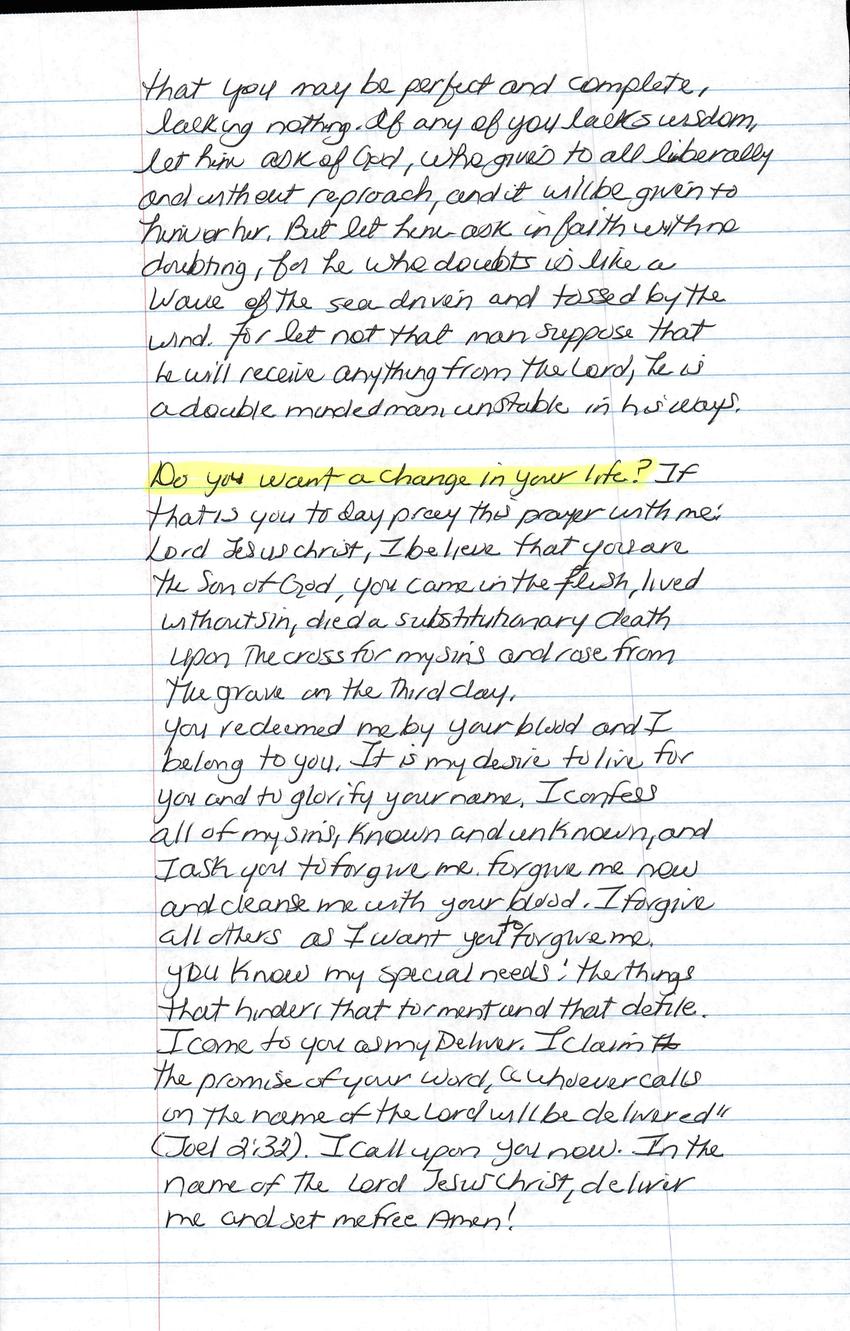 that you may be perfect and complete,
lacking nothing. If any of you lacks wisdom,
let him ask of God, who gives to all liberally
and without reproach, and it will be given to
him or her. But let him ask in faith with no
doubting, for he who doubts is like a
wave of the sea driven and tossed by the
wind. For let not that man suppose that
he will receive anything from the Lord, he is
a double minded man, unstable in his ways.
Do you want a change in your life? If
that is you to day pray this prayer with me:
Lord Jesus christ, I believe that you are
the Son of God, you came in the flesh, lived
without sin, died a substitutionary death
upon The cross for my sins and rose from
The grave on the Third day.
you redeemed me by your blood and I
belong to you. It is my desire to live for
you and to glorify your name. I confess
all of my sins, known and unknown, and
I ask you to forgive me. forgive me now
and cleanse me with your blood. I forgive
all others as I want you to forgive me.
you know my special needs: the things
that hinder, that torment and that defile.
I come to you as my Deliver. I claim
the promise of your word, "whoever calls
on The name of the Lord will be delivered"
(Joel 2:32). I call upon you now. In the
name of The Lord Jesus Christ, deliver
me and set me free Amen!